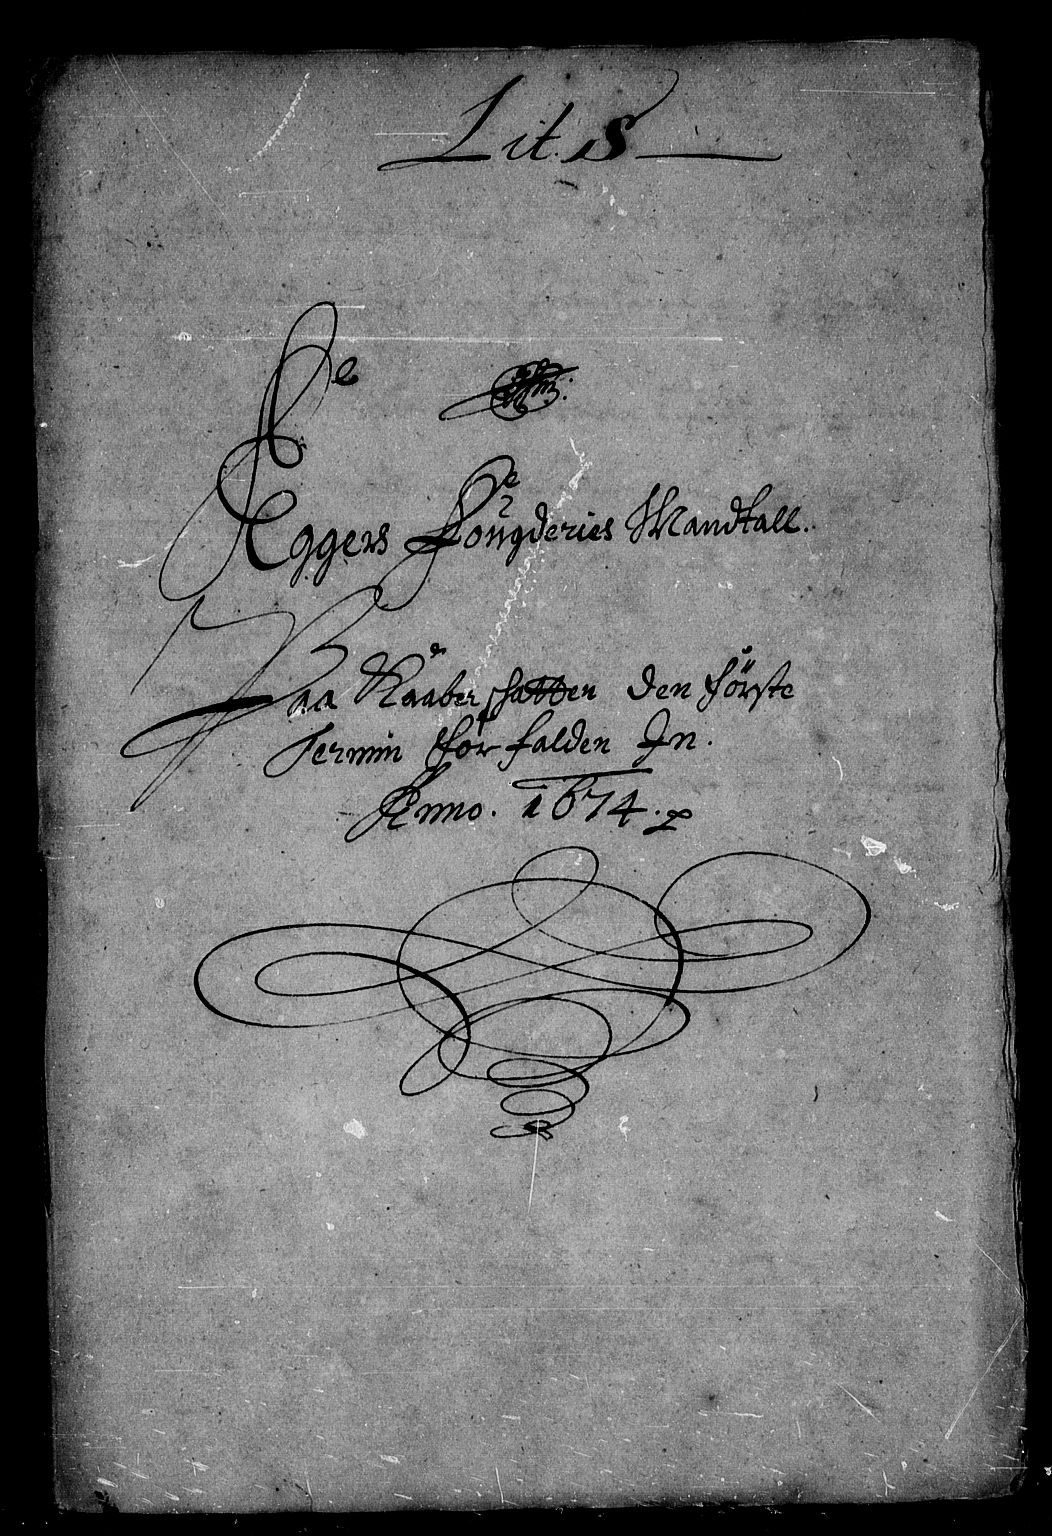 Lit. S
Eggers Fougderies Mandtall.
Paa Kaaber schatten den förste
Termin for falden Jn.
Anno. 1674.